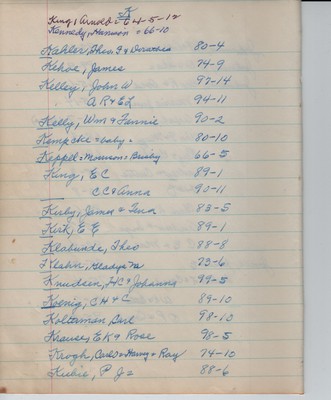 K
King, Arnold = C 4-5-12
Kennedy, Harrison = 66-10
Kahler, Theo. F & Dorothea 80-4
Kehoe, James 74-9
Kelley, John W 97-14
A R & E L 94-11
Kelly, Wm & Fannie 90-2
Kempske = baby = 80-10
Keppel = Morrison = Brisby 66-5
King, E C 89-1
C C & Anna 90-11
Kirby, James & Tena 83-5
Kirk, E E 89-1
Klabunde, Theo 88-8
Klahn, Gladys M 73-6
Knudsen, H C & Johanna 99-5
Koenig, C H & C 89-10
Kolterman, Carl 98-10
Krause, E K & Rose 98-5
Krogh, Carl = Harvey = Ray 74-10
Kubie, P J = 88-6